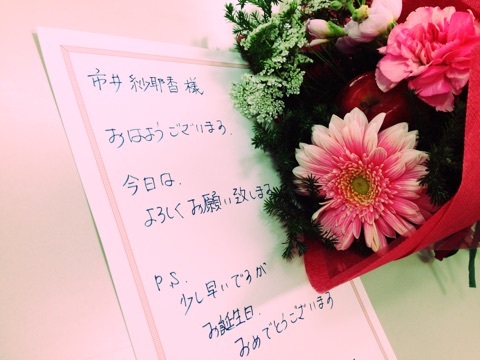 市井紗耶香様
おはようございます.
今日は.
よろしくお願い致します
P.S.
少し早いですが
お誕生日.
おめでとうございます